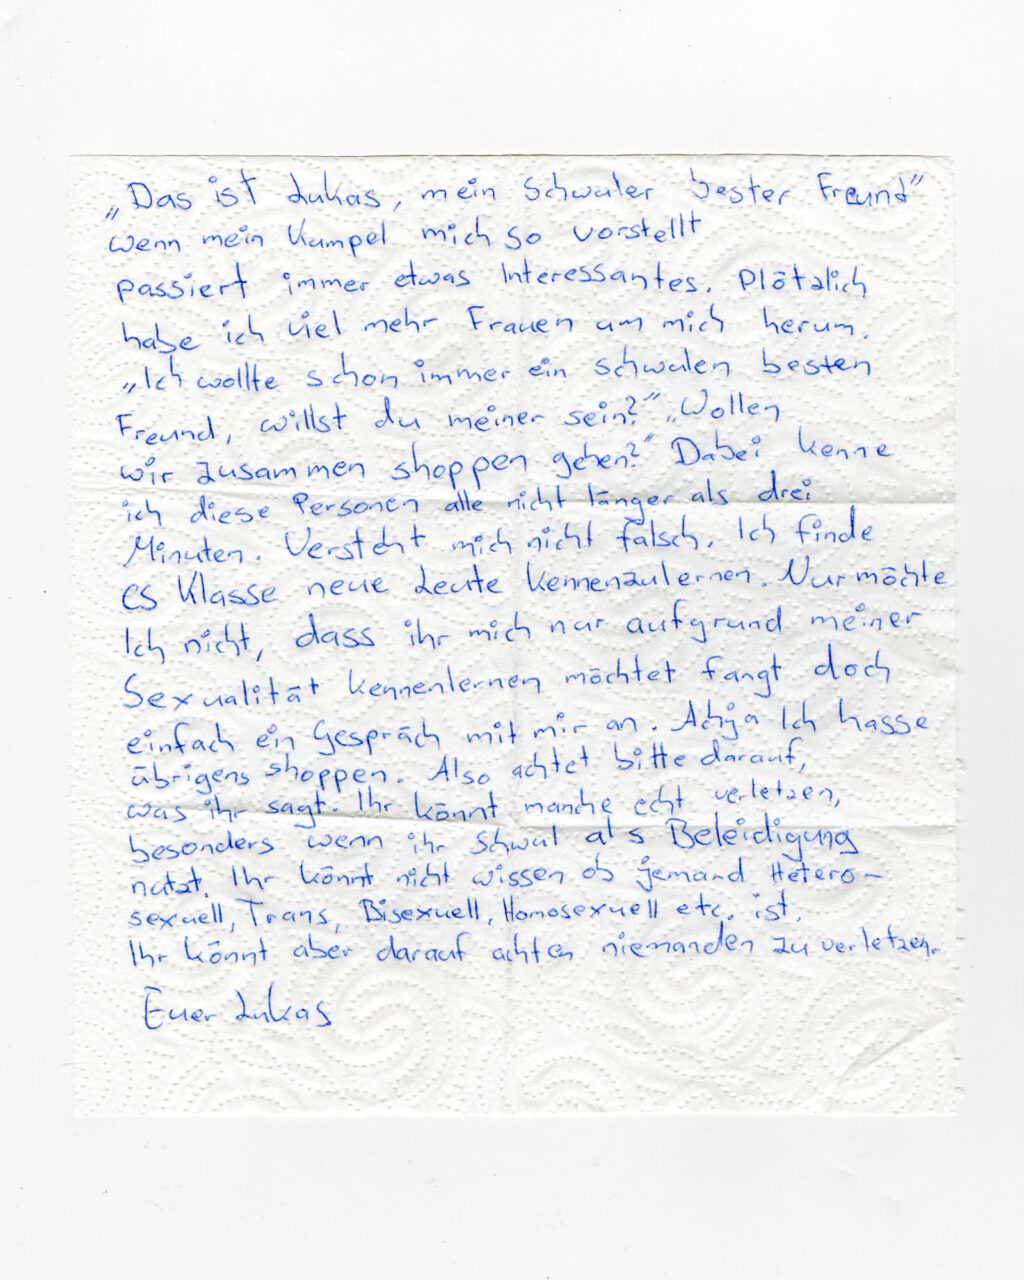 „Das ist Lukas, mein Schwuler bester Freund"
wenn mein Kumpel mich so vorstellt
passiert immer etwas Interessantes. Plötzlich
habe ich viel mehr Frauen um mich herum.
„Ich wollte schon immer ein schwulen besten
Freund, willst du meiner sein?" „Wollen
wir zusammen shoppen gehen?" Dabei kenne
ich diese Personen alle nicht länger als drei
Minuten. Versteht mich nicht falsch. Ich finde
es Klasse neue Leute kennenzulernen. Nur möchte
Ich nicht, dass ihr mich nur aufgrund meiner
Sexualität kennenlernen möchtet fangt doch
einfach ein Gespräch mit mir an. Achja Ich hasse
übrigens shoppen. Also achtet bitte darauf,
was ihr sagt. Ihr könnt manche echt verletzen,
besonders wenn ihr Schwul als Beleidigung
nutzt. Ihr könnt nicht wissen ob jemand Hetero-
sexuell, Trans, Bisexuell, Homosexuell etc. ist.
Ihr könnt aber darauf achten niemanden zu verletzen.
Euer Lukas